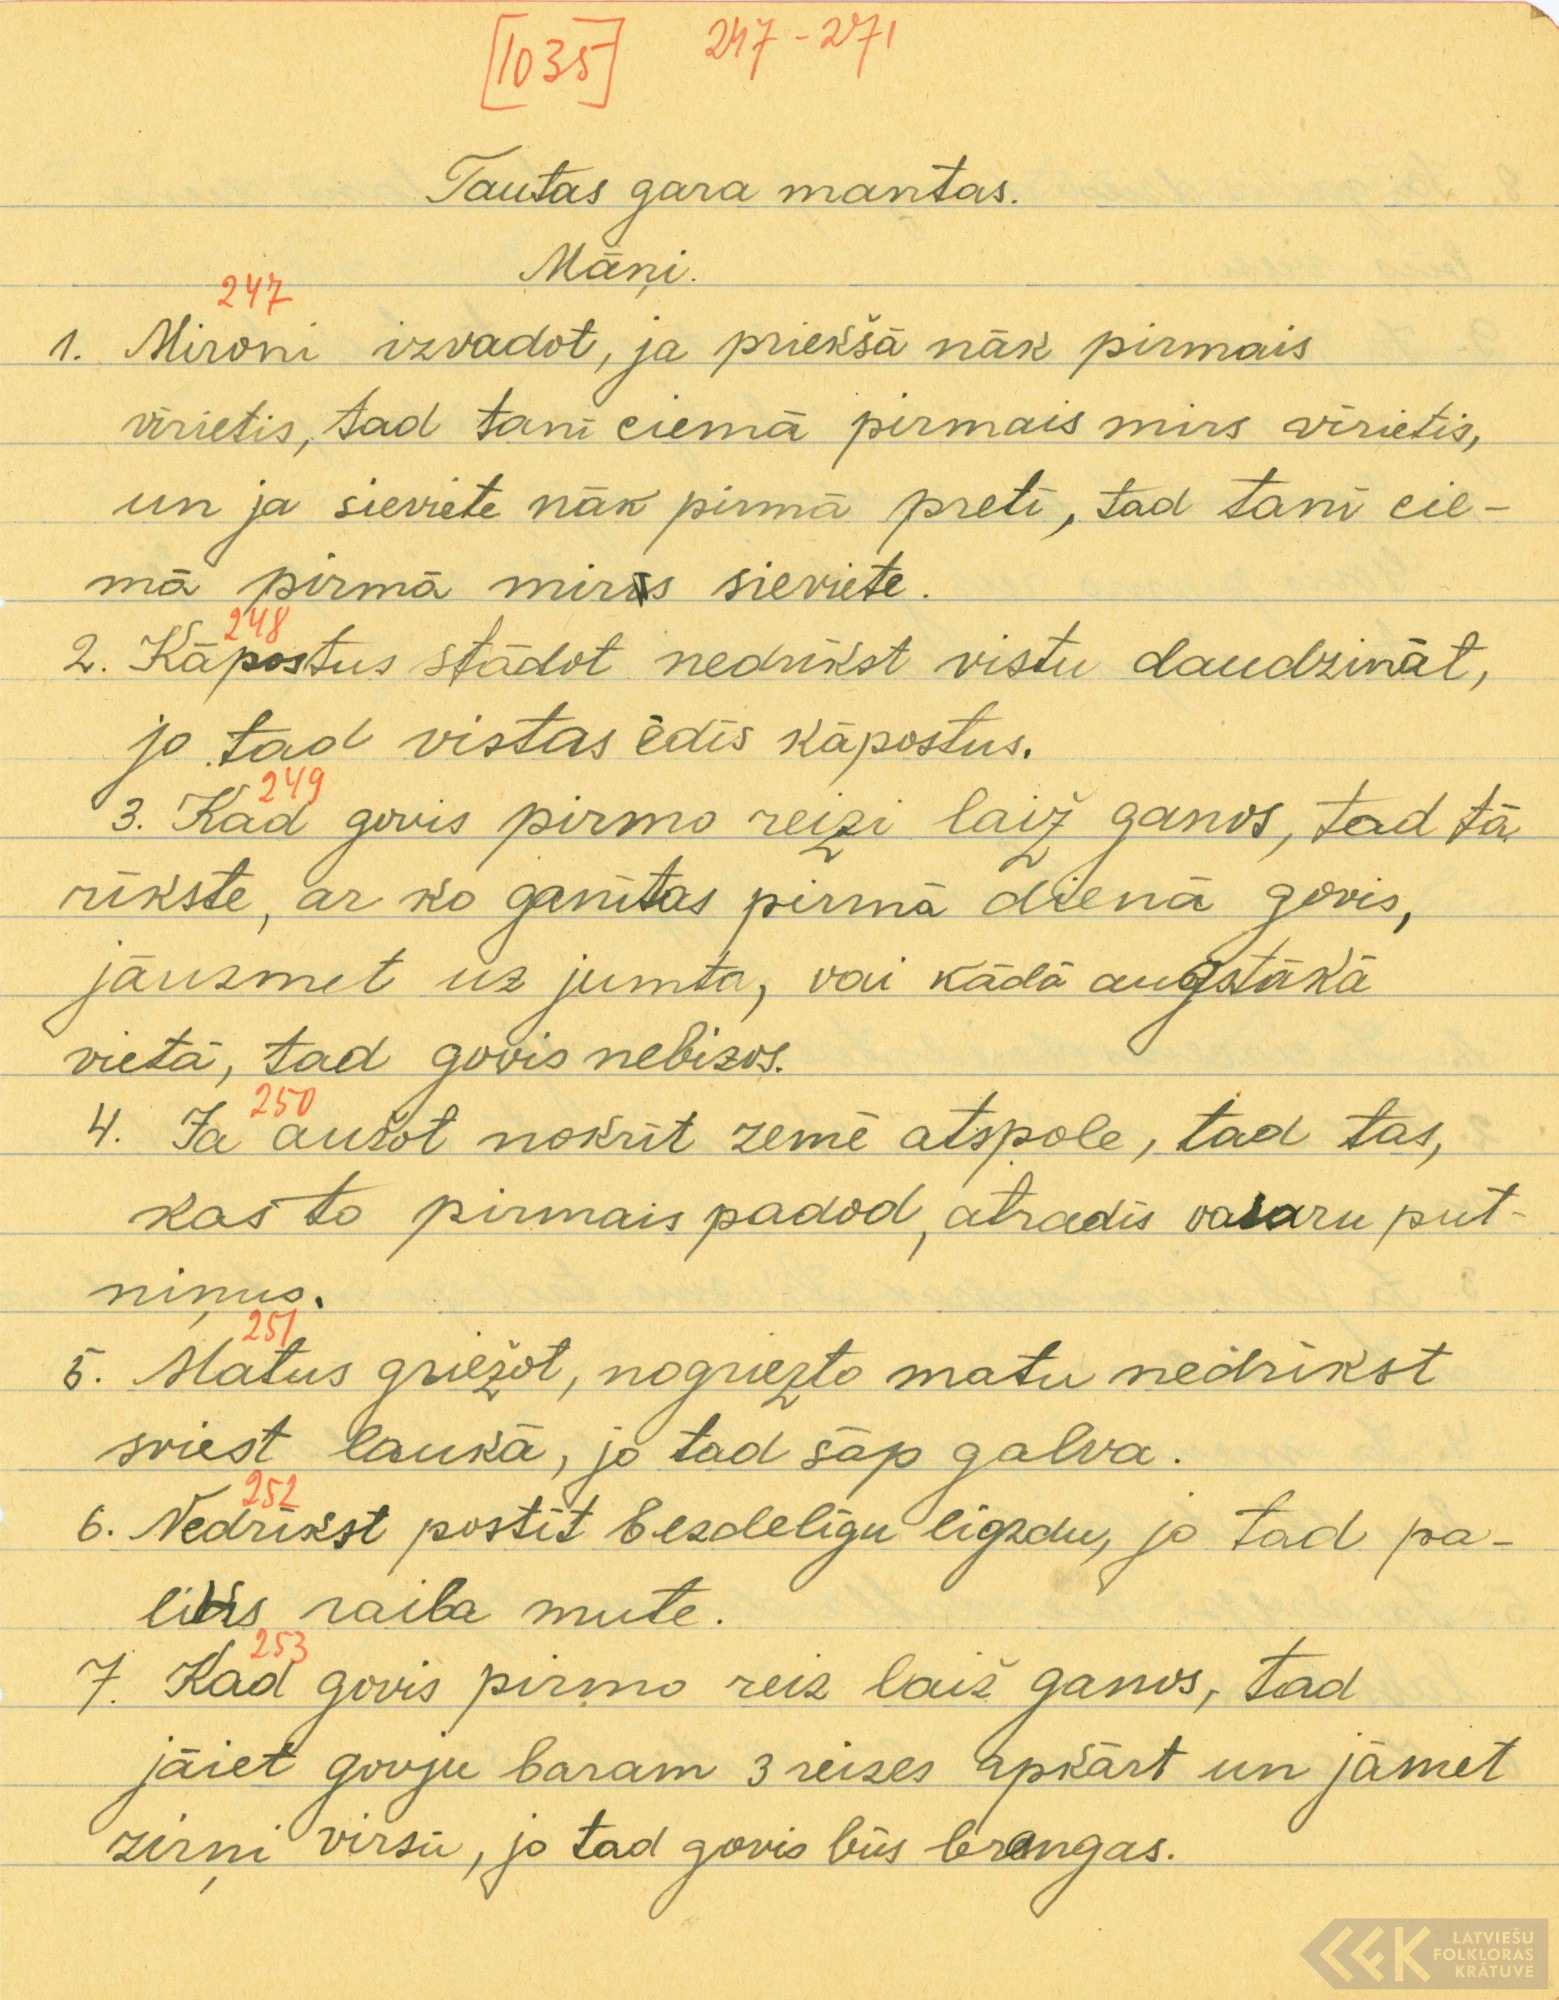 [1035] 247-271
Tautas gara mantas.
Māņi.
247
1. Mironi izvadot, ja priekšā nāk pirmais
vīrietis, tad tanī ciemā pirmais mirs vīrietis,
un ja sieviete nāk pirmā pretī, tad tanī cie-
mā pirmā mirs sieviete.
248
2. Kāpostus stādot nedrīkst vistu daudzināt,
jo tad vistas ēdīs kāpostus.
249
3. Kad govis pirmo reizi laiž ganos, tad tā
rīkste, ar ko ganītas pirmā dienā govis,
jāuzmet uz jumta, vai kādā augstākā
vietā, tad govis nebizos.
250
4. Ja aužot nokrīt zemē atspole, tad tas,
kas to pirmais padod, atradīs vasaru put-
niņus.
251
5. Matus griežot, nogriezto matu nedrīkst
sviest laukā, jo tad sāp galva.
252
6. Nedrīkst postīt bezdelīgu ligzdu, jo tad pa-
liks raiba mute.
253
7. Kad govis pirmo reiz laiž ganos, tad
jāiet govju baram 3 reizes apkārt un jāmet
zirņi virsū, jo tad govis būs brangas.
LATVIEŠU
FOLKLORAS
KRĀTUVE